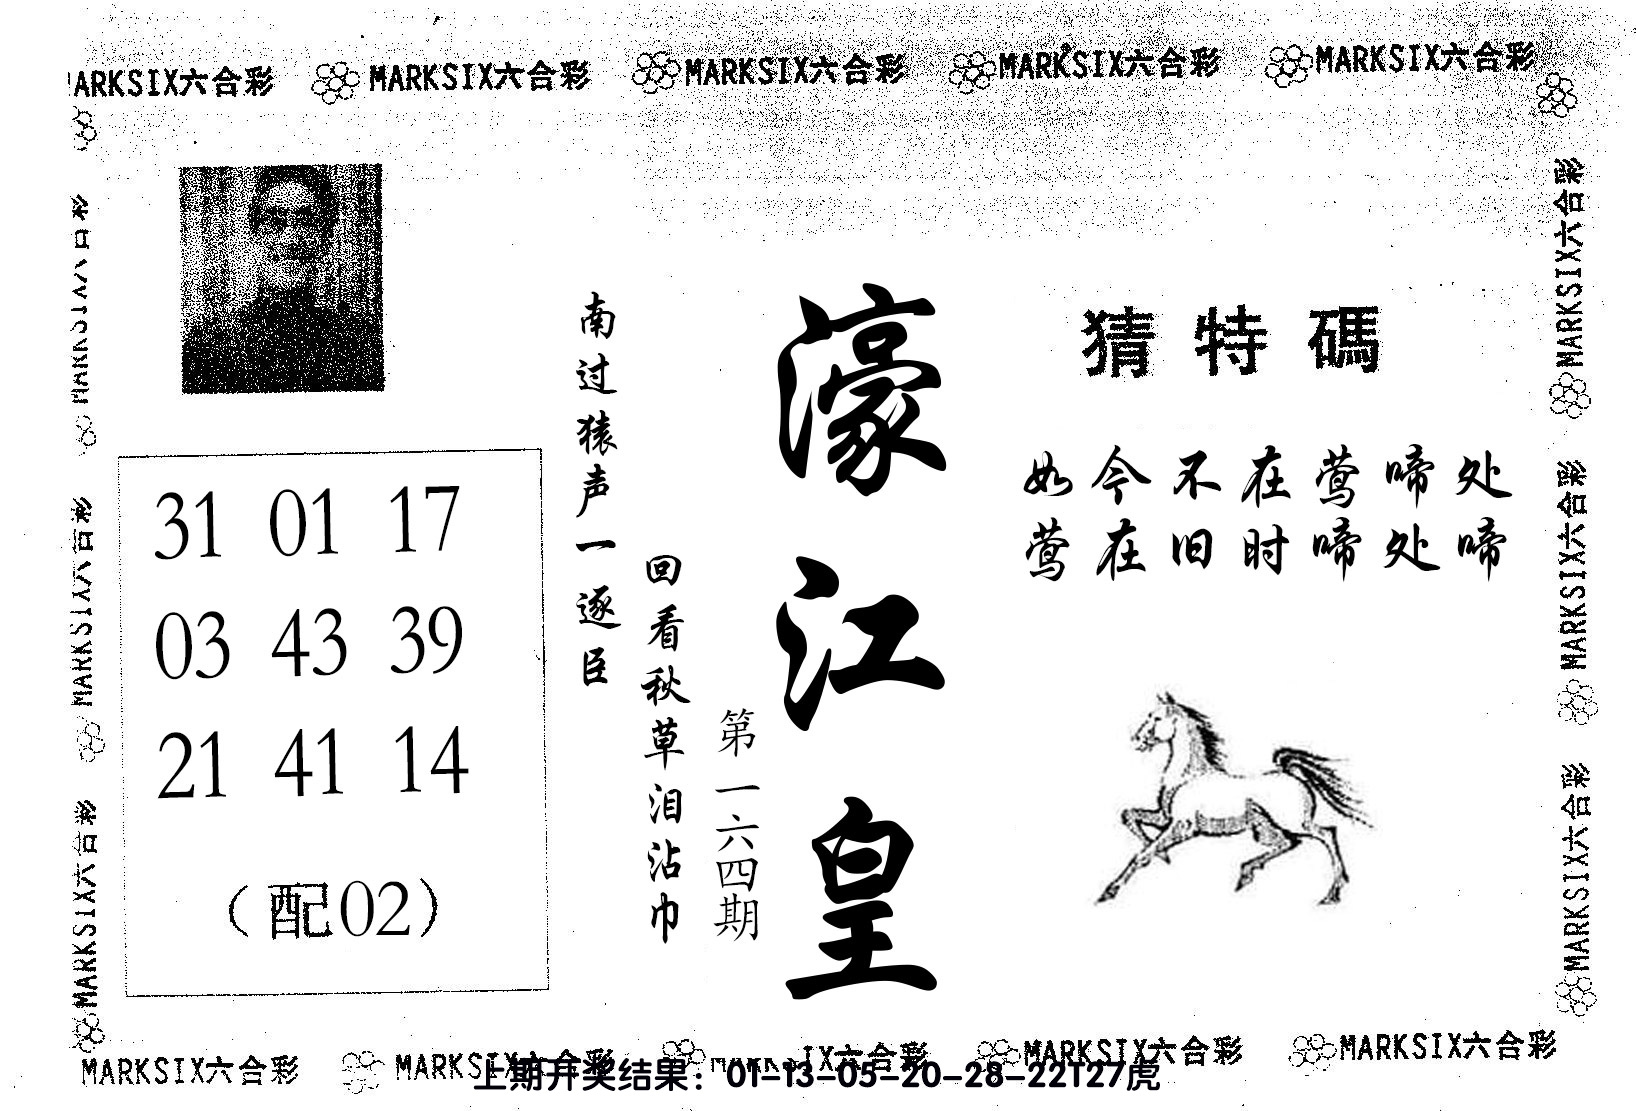 MARKSIX六合彩 MARKSIX六合彩 MARKSIX六合彩 MARKSIX六合彩
猜特碼
如今不在莺啼处
莺在旧时啼处啼
濠江皇
第一六四期
南过猿声一逐臣
回看秋草泪沾巾
31 01 17
03 43 39
21 41 14
（配02）
MARKSIX六合彩
MARKSIX六合彩
MARKSIX六合彩
MARKSIX六合彩
MARKSIX六合彩 MARKSIX六合彩 MARKSIX六合彩 MARKSIX六合彩
上期开奖结果：01-13-05-20-28-22T27虎